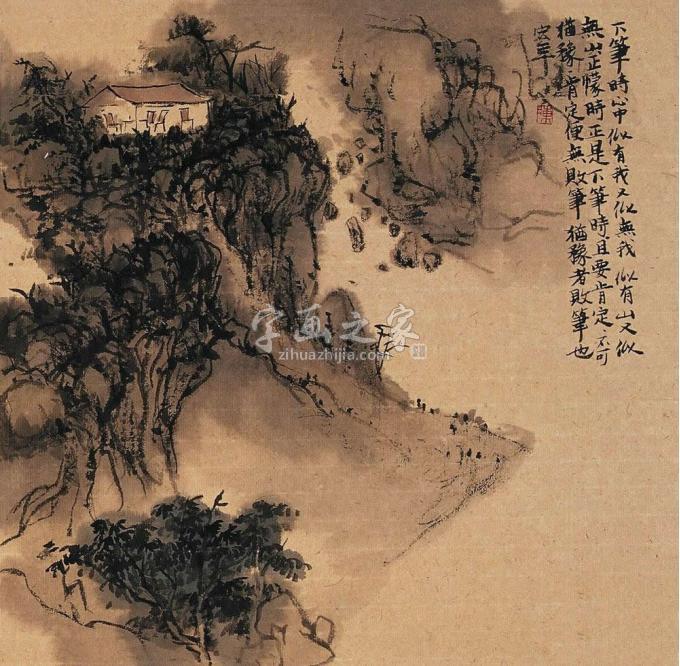 下筆時心中似有我又似無我似有山又似
無山正懞時正是下筆時且要肯定不可
猶豫肯定便無敗筆猶豫者敗筆也
字画之家
zihuazhijia.com